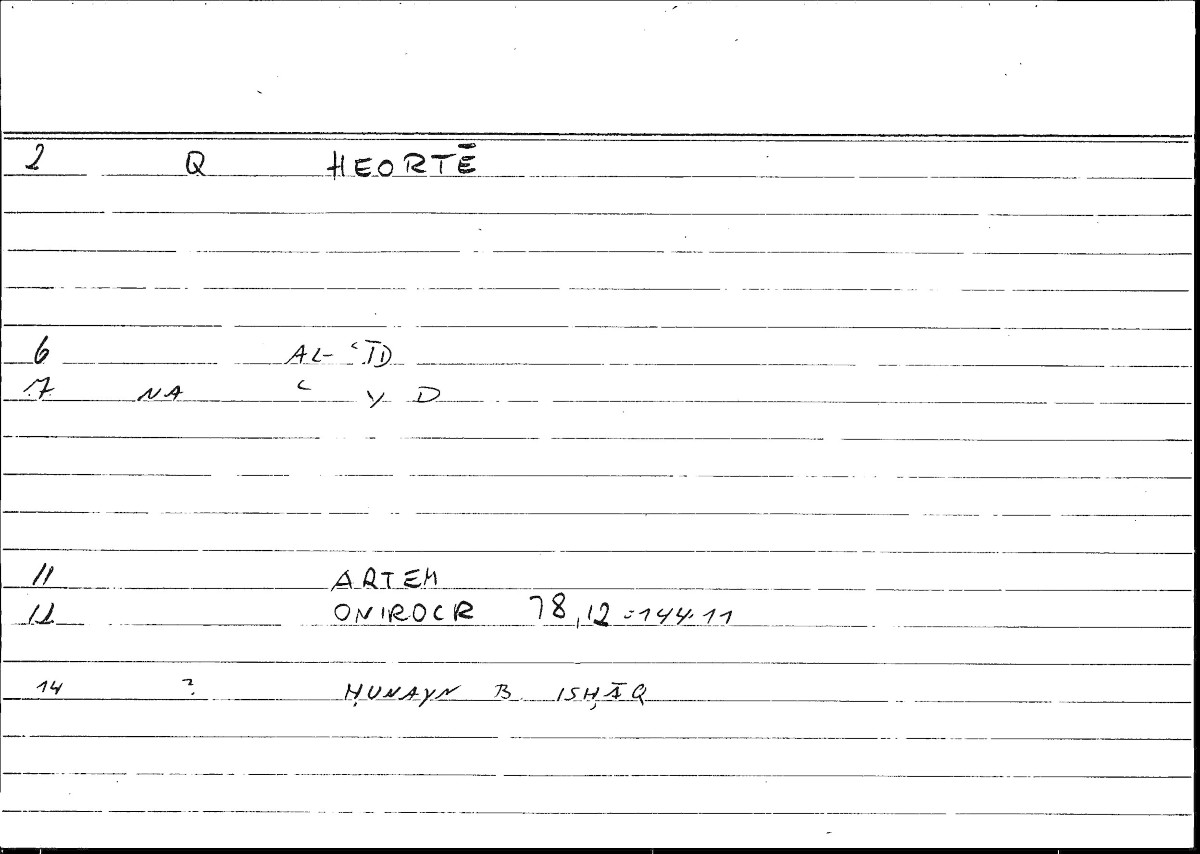 2 Q HEORTĒ
6 AL- ʿĪD
7 NA ʿ Y D
11 ARTEM
12 ONIROCR 78,12 = 144.11
14 ? ḤUNAYN B ISḤĀQ